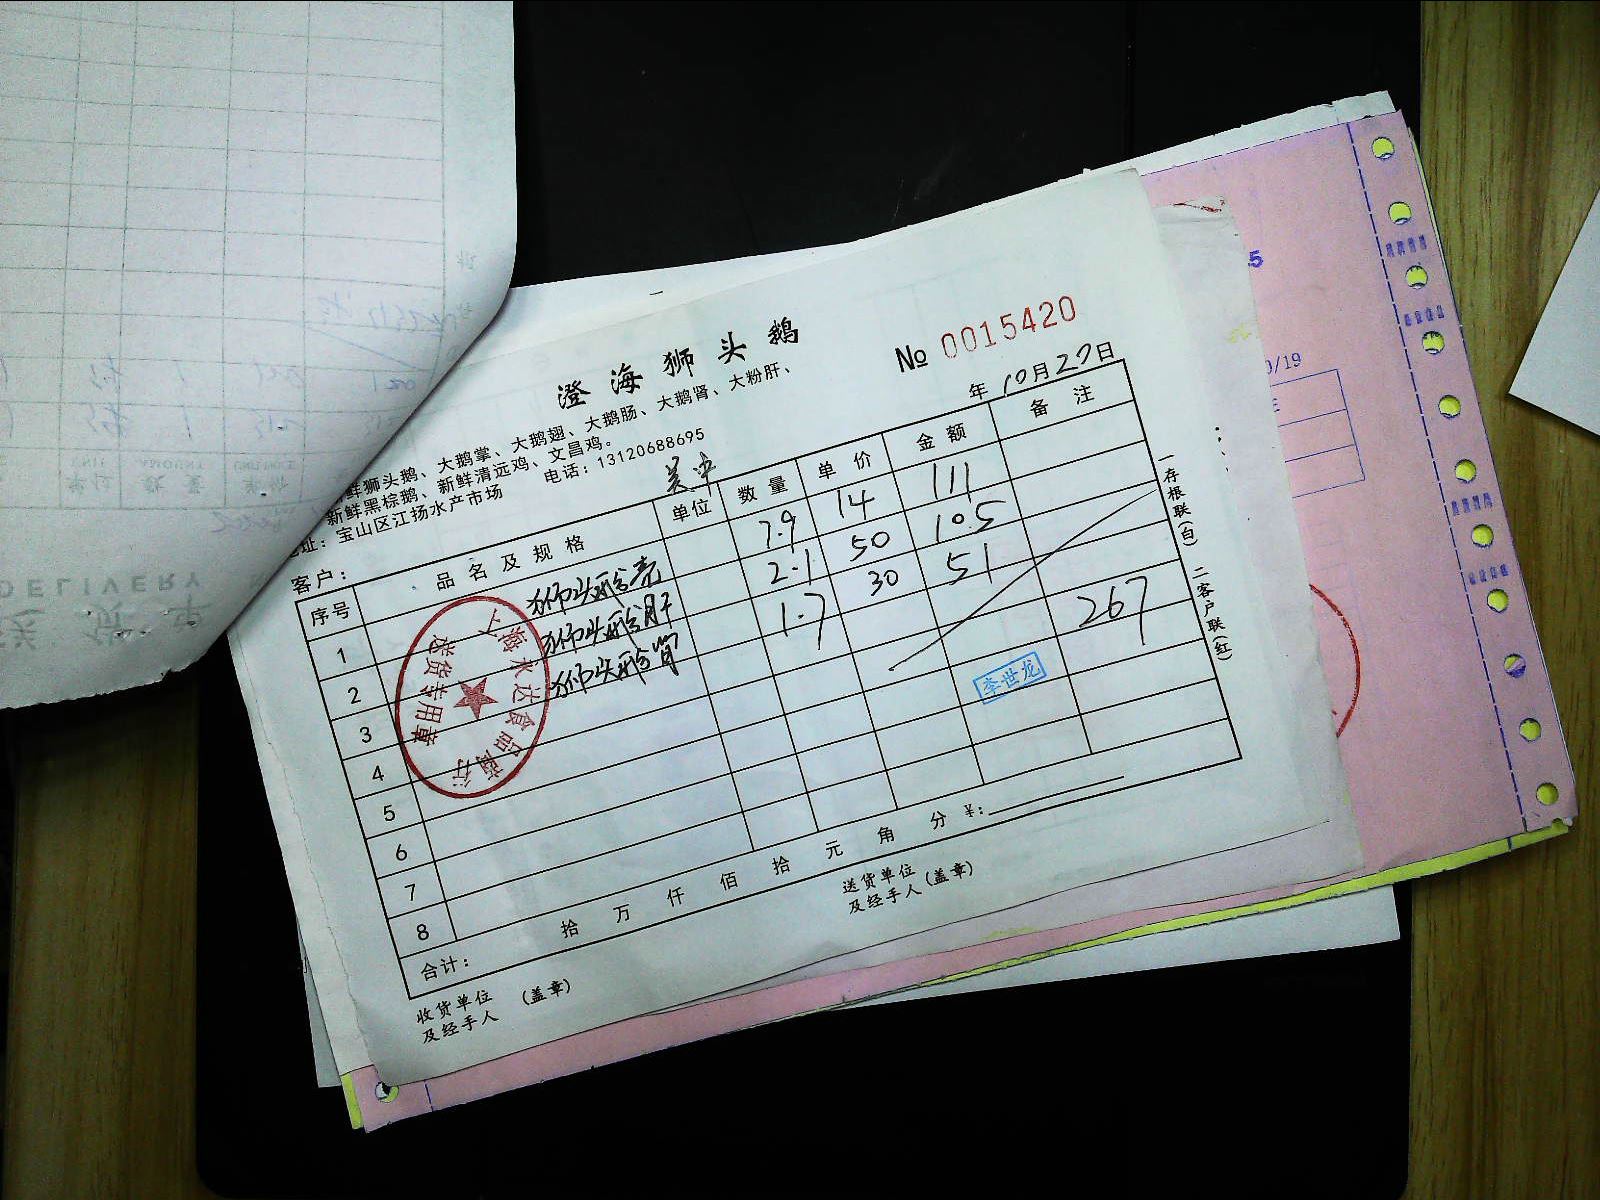 澄海狮头鹅
№ 0015420
鲜狮头鹅、大鹅掌、大鹅翅、大鹅肠、大鹅肾、大粉肝、
新鲜黑棕鹅、新鲜清远鸡、文昌鸡。
址：宝山区江扬水产市场 电话：13120688695
客户：
年 10月27日
序号 品名及规格 单位 数量 单价 金额 备注
1 狮头鹅壳 7.9 14 111
2 狮头鹅肝 2.1 50 105
3 狮头鹅肾 1.7 30 51
4 267
5
6
7
8
合计： 拾 万 仟 佰 拾 元 角 分 ¥:
收货单位
及经手人 (盖章)
送货单位
及经手人 (盖章)
一存根联(白) 二客户联(红)
上海永达食品商行
送货专用章
李世龙
0/19
5